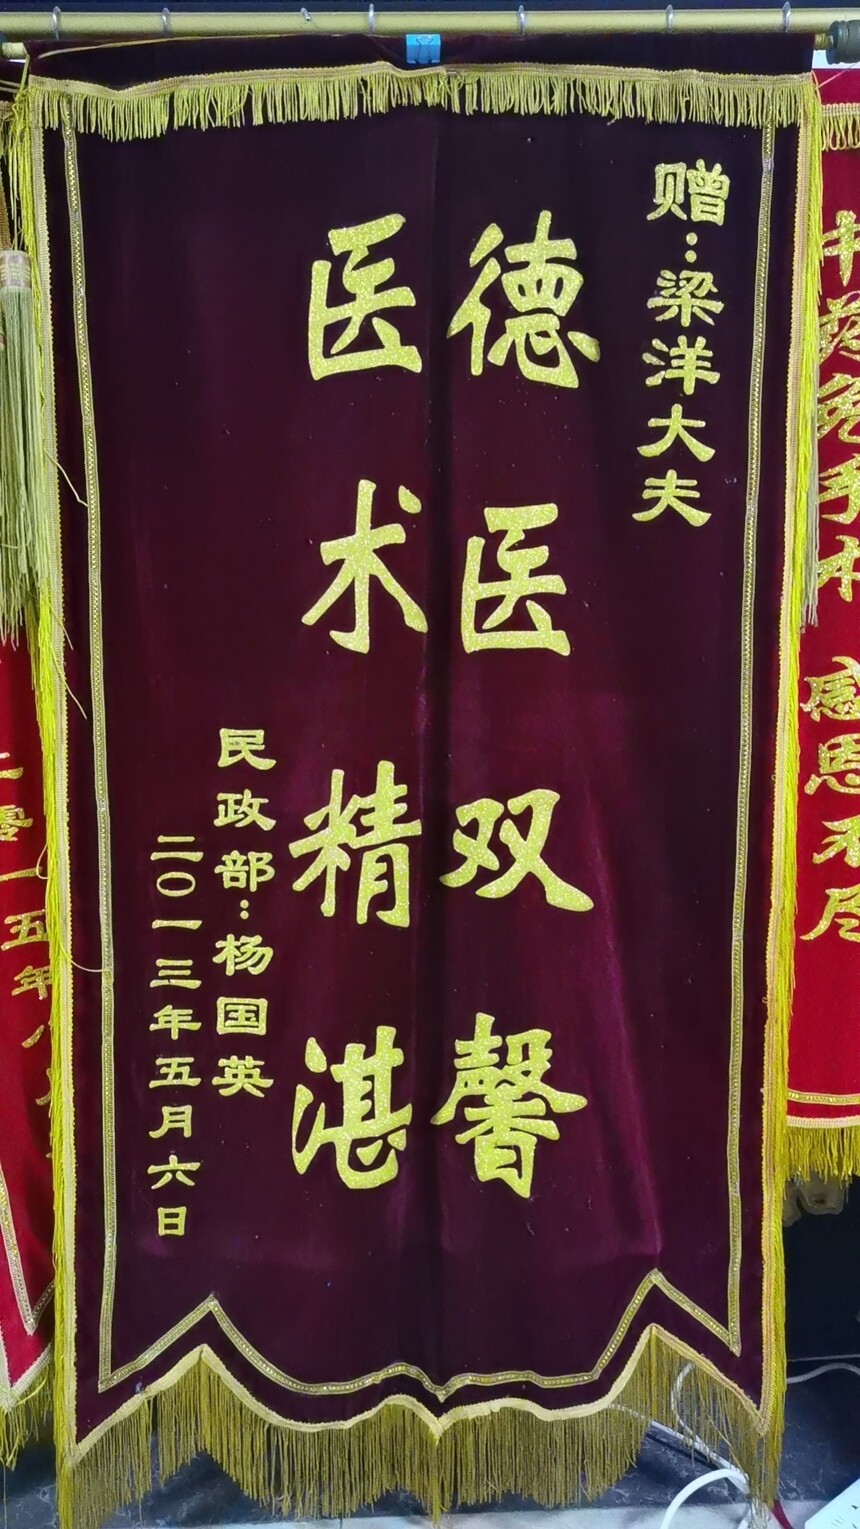 赠：梁洋大夫
德医双馨
医术精湛
民政部：杨国英
二〇一三年五月六日
感恩不尽